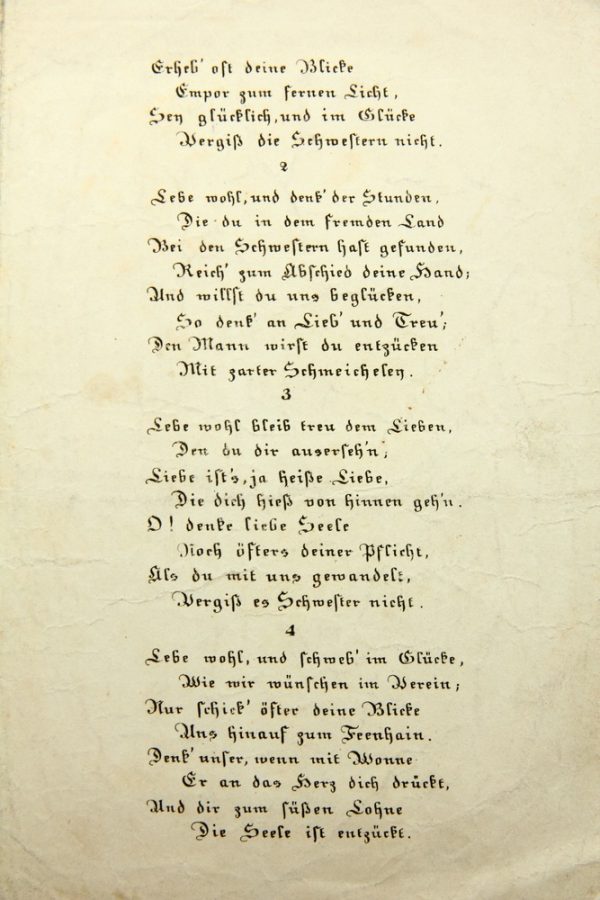 Erheb' oft deine Blicke
Empor zum fernen Licht,
Sey glücklich, und im Glücke
Vergiß die Schwestern nicht.
2
Lebe wohl, und denk' der Stunden,
Die du in dem fremden Land
Bei den Schwestern hast gefunden,
Reich' zum Abschied deine Hand;
Und willst du uns beglücken,
So denk' an Lieb' und Treu';
Den Mann wirst du entzücken
Mit zarter Schmeicheley.
3
Lebe wohl bleib treu dem Lieben,
Den du dir auserseh'n;
Liebe ist's, ja heiße Liebe,
Die dich hieß von hinnen geh'n.
O! denke liebe Seele
Noch öfters deiner Pflicht,
Als du mit uns gewandelt,
Vergiß es Schwester nicht.
4
Lebe wohl, und schweb' im Glücke,
Wie wir wünschen im Verein;
Nur schick' öfter deine Blicke
Uns hinauf zum Feenhain.
Denk' unser, wenn mit Wonne
Er an das Herz dich drückt,
Und dir zum süßen Lohne
Die Seele ist entzückt.